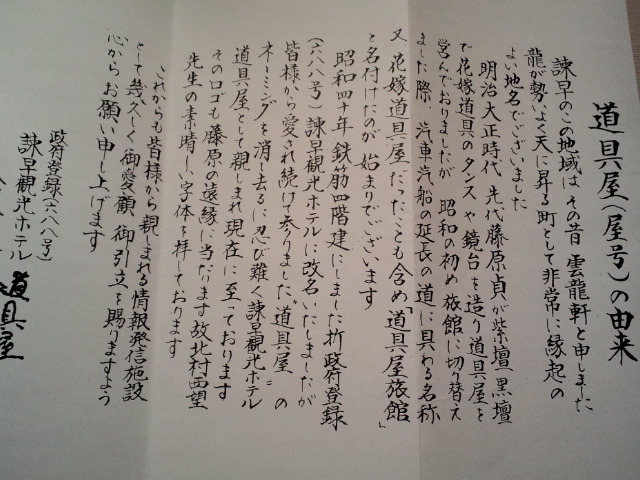 道具屋(屋号)の由来
諫早のこの地域は その昔 雲龍軒と申しました
龍が勢いよく天に昇る町として非常に縁起の
よい地名でございました
明治大正時代 先代藤原貞が紫壇 黒壇
で花嫁道具のタンスや鏡台を造り道具屋を
営んでおりましたが 昭和の初め旅館に切り替え
ました際 汽車汽船の延長の道に具わる名称
又 花嫁道具屋だったことも含め「道具屋旅館」
と名付けたのが 始まりでございます
昭和四十年 鉄筋四階建にしました折 政府登録
(六八八号)諫早観光ホテルに改名いたしましたが
皆様から愛され続けて参りました〝道具屋〟の
ネーミングを消し去るに忍び難く諫早観光ホテル
道具屋として親しまれ現在に至っております
そのロゴも藤原の遠縁に当たります故北村西望
先生の素晴しい字体を拝しております
これからも皆様から親しまれる情報発信施設
として幾久しく御愛顧 御引立を賜りますよう
心からお願い申し上げます
政府登録(六八八号)
諫早観光ホテル
道具屋